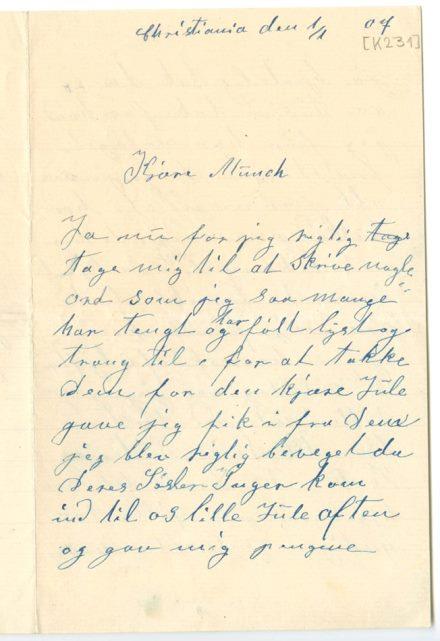 Christiania den 1/1 04
[K231]
Kjære Munch
Ja nu for jeg rigtig tage
tage mig til at skrive nogle
ord som jeg saa mange
har tengt og Har følt lyst og
trang til. for at takke
Dem for den kjære Jule
gave jeg fik i fra Dem
jeg blev rigtig beveget da
Deres Søster Inger kom
ind til os lille Jule aften
og gav mig pengene